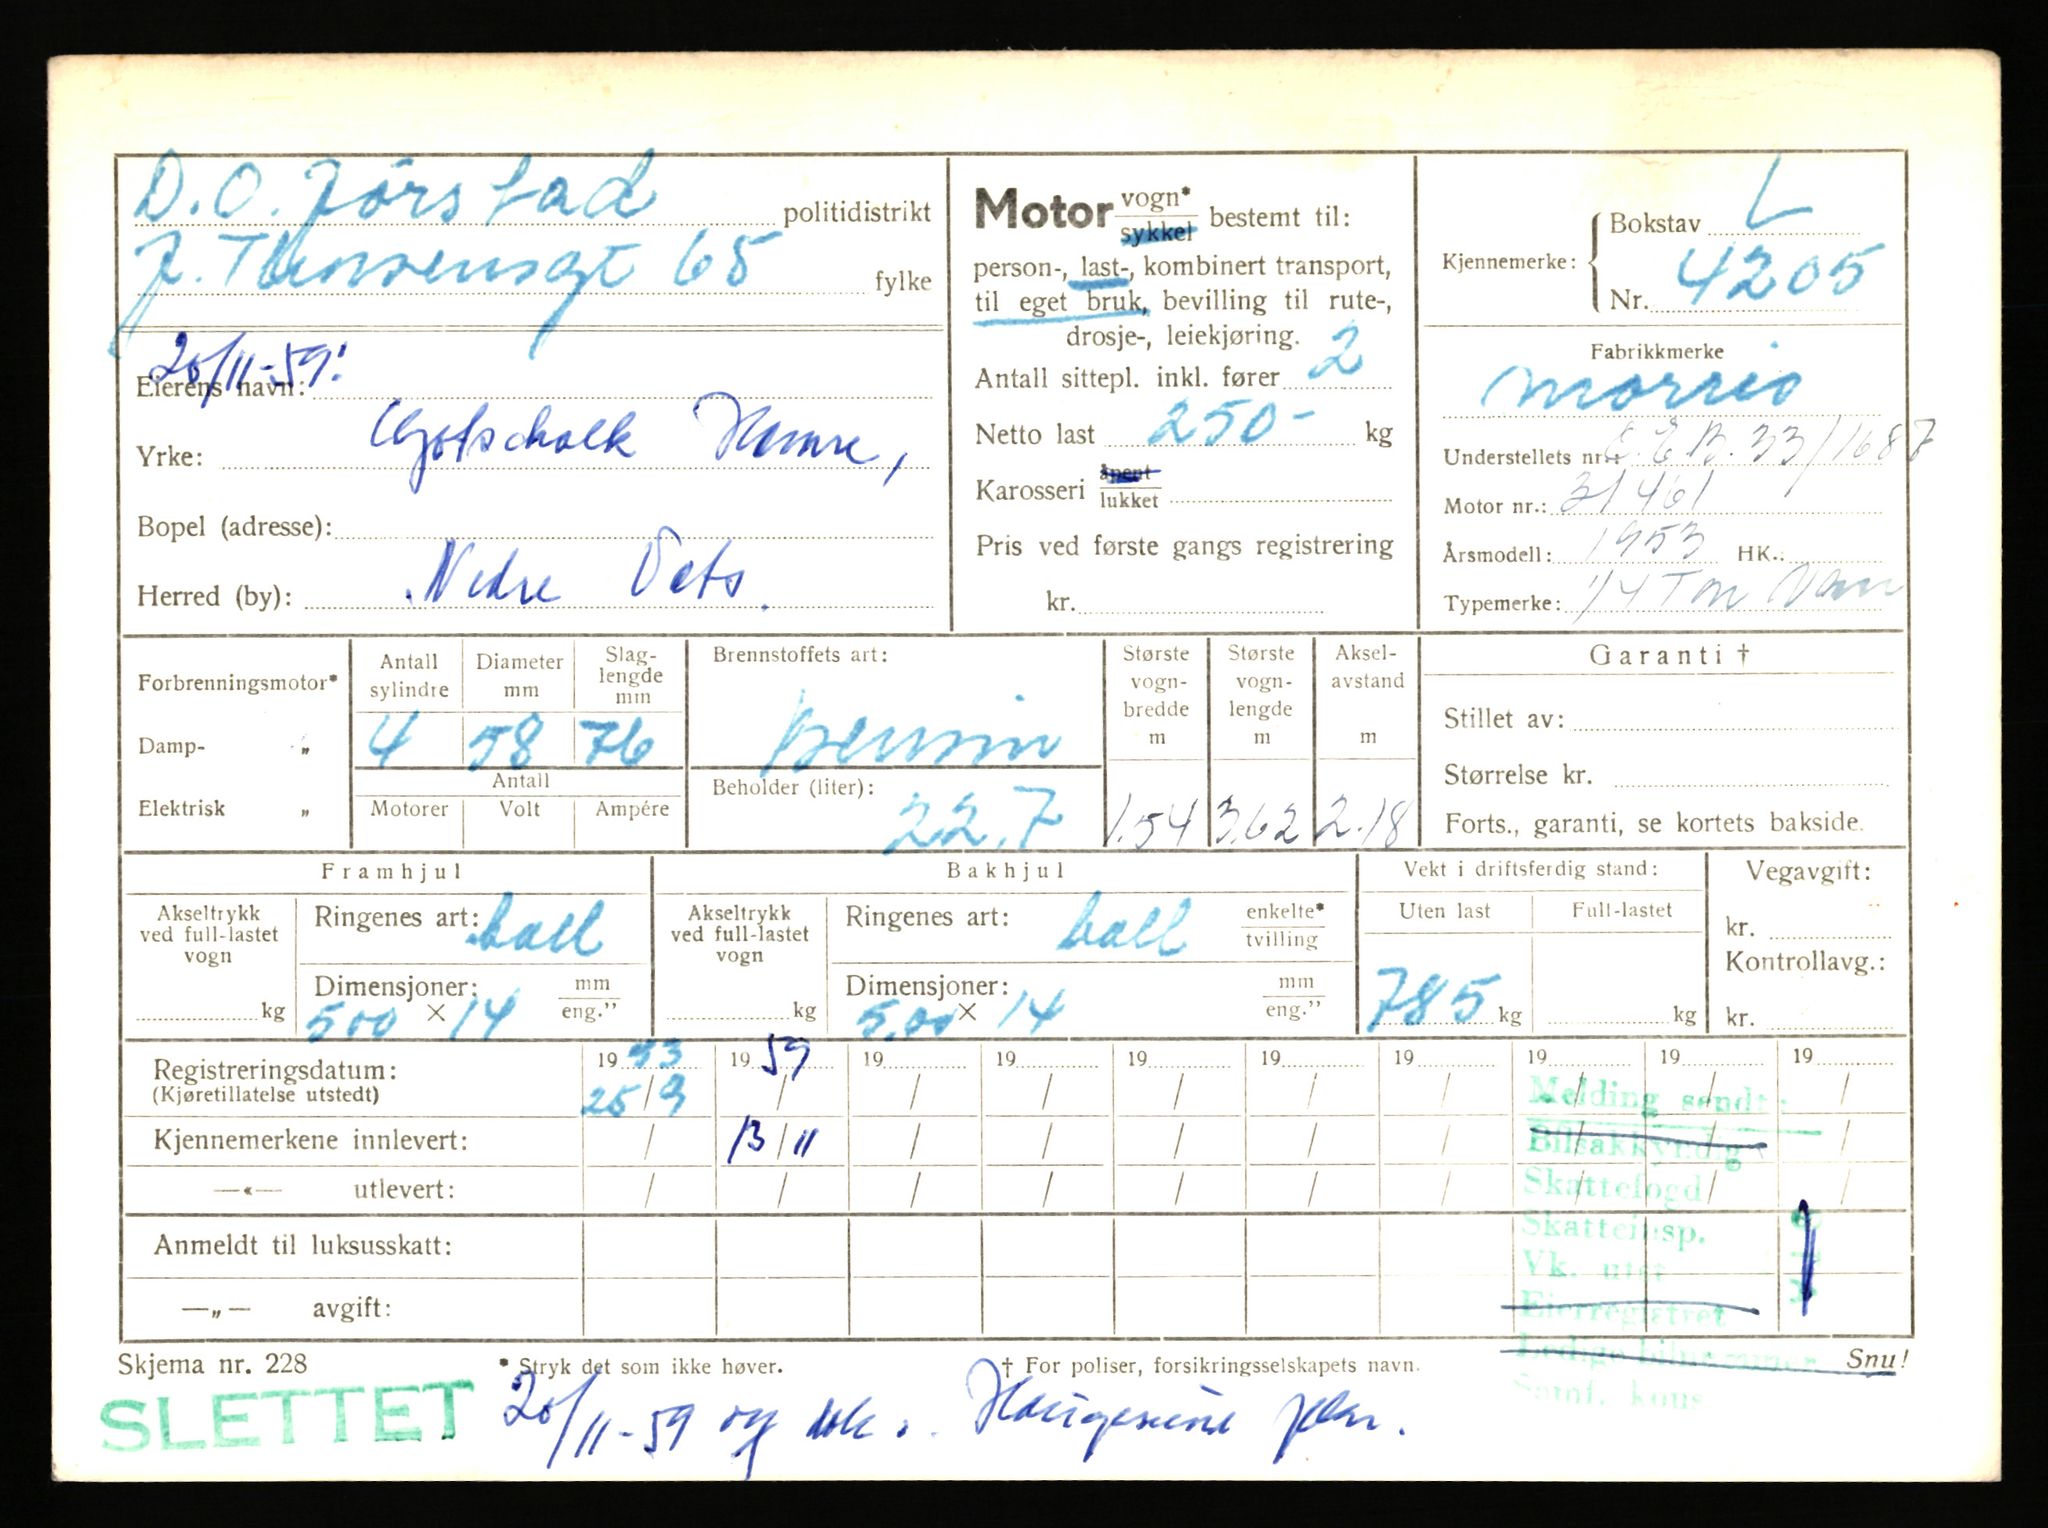 D. O. Jörstad politidistrikt
J. Thorsensgt 65 fylke
20/11-59!
Eierens navn:
Yrke: Gotschalk Hamre,
Bopel (adresse):
Herred (by): Nedre Vats.
Motor vogn* / sykkel bestemt til:
person-, last-, kombinert transport,
til eget bruk, bevilling til rute-,
drosje-, leiekjøring.
Antall sittepl. inkl. fører 2
Netto last 250- kg
Karosseri åpent / lukket
Pris ved første gangs registrering
kr.
Kjennemerke: { Bokstav L
Nr. 4205
Fabrikkmerke
Morris
Understellets nr.: E.E.B. 33/1687
Motor nr.: 31461
Årsmodell: 1953 HK.:
Typemerke: 1/4 Ton Van
Forbrenningsmotor*
Damp- „
Elektrisk „
Antall sylindre
4
Diameter mm
58
Slaglengde mm
76
Antall
Motorer Volt Ampére
Brennstoffets art:
bensin
Beholder (liter):
22,7
Største vognbredde m
1.54
Største vognlengde m
3.62
Akselavstand m
2.18
Garanti †
Stillet av:
Størrelse kr.
Forts., garanti, se kortets bakside.
Framhjul
Akseltrykk ved full-lastet vogn
kg
Ringenes art: ball
Dimensjoner: mm / eng."
500 × 14
Bakhjul
Akseltrykk ved full-lastet vogn
kg
Ringenes art: ball enkelte* / tvilling
Dimensjoner: mm / eng."
5,00 × 14
Vekt i driftsferdig stand:
Uten last Full-lastet
785 kg kg
Vegavgift:
kr.
Kontrollavg.:
kr.
Registreringsdatum: 19 53 19 59 19 19 19 19 19 19 19 19
(Kjøretillatelse utstedt) 25/9 / / / / / / / / /
Kjennemerkene innlevert: / 13/11 / / / / / / / /
—«— utlevert: / / / / / / / / /
Anmeldt til luksusskatt:
—„— avgift:
Melding sendt:
Bilsakkyndig
Skattefogd
Skatteinsp.
Vk. utst
Eierregistret
Ledige bilnummer
Samf. kons
Skjema nr. 228 * Stryk det som ikke høver. † For poliser, forsikringsselskapets navn. Snu!
SLETTET 20/11-59 og dok. Haugesund